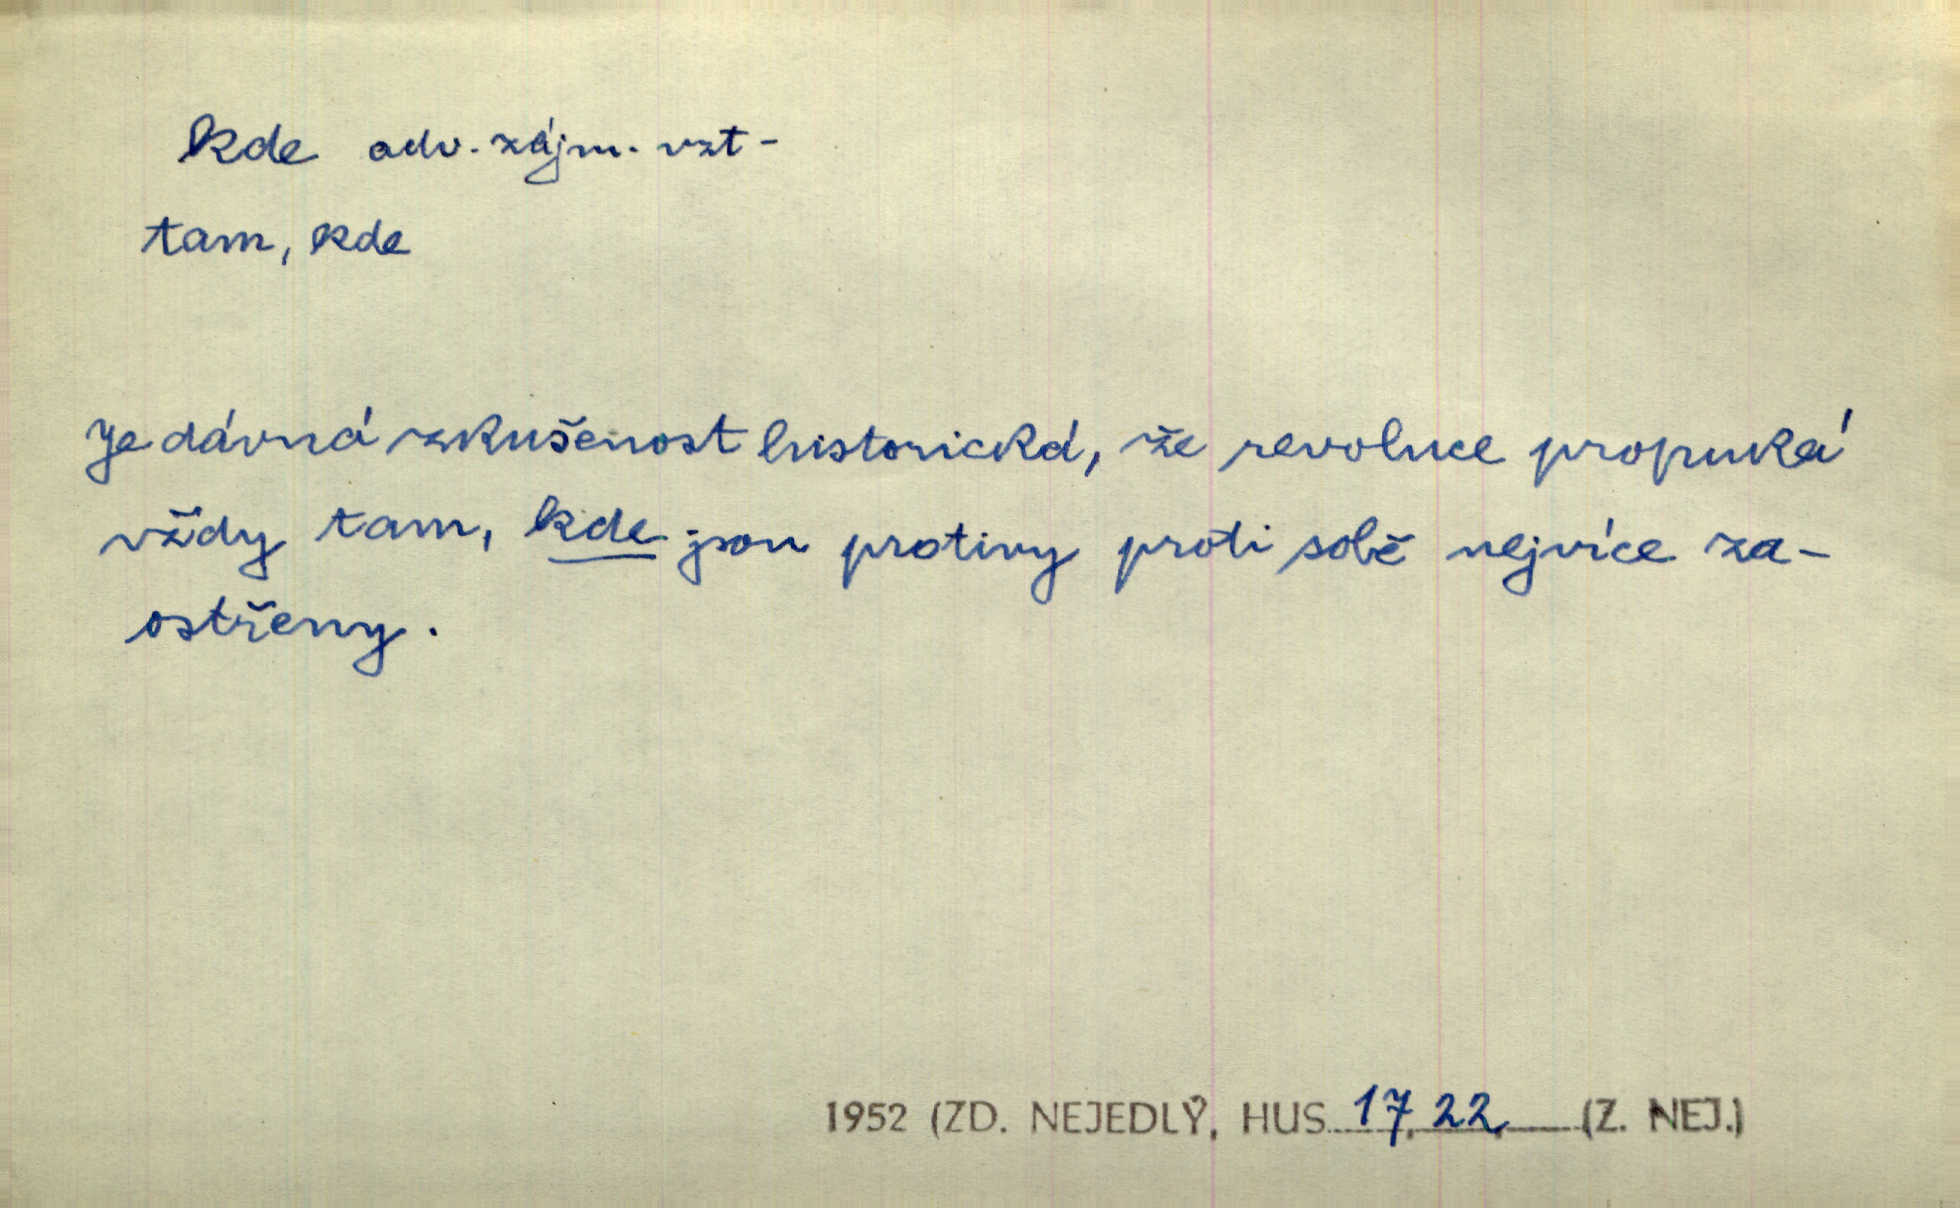 kde adv. zájm. vzt-
tam, kde
Je dávná zkušenost historická, že revoluce propuká
vždy tam, kde jsou protivy proti sobě nejvíce za-
ostřeny.
1952 (ZD. NEJEDLÝ, HUS 17, 22 (Z. NEJ.)